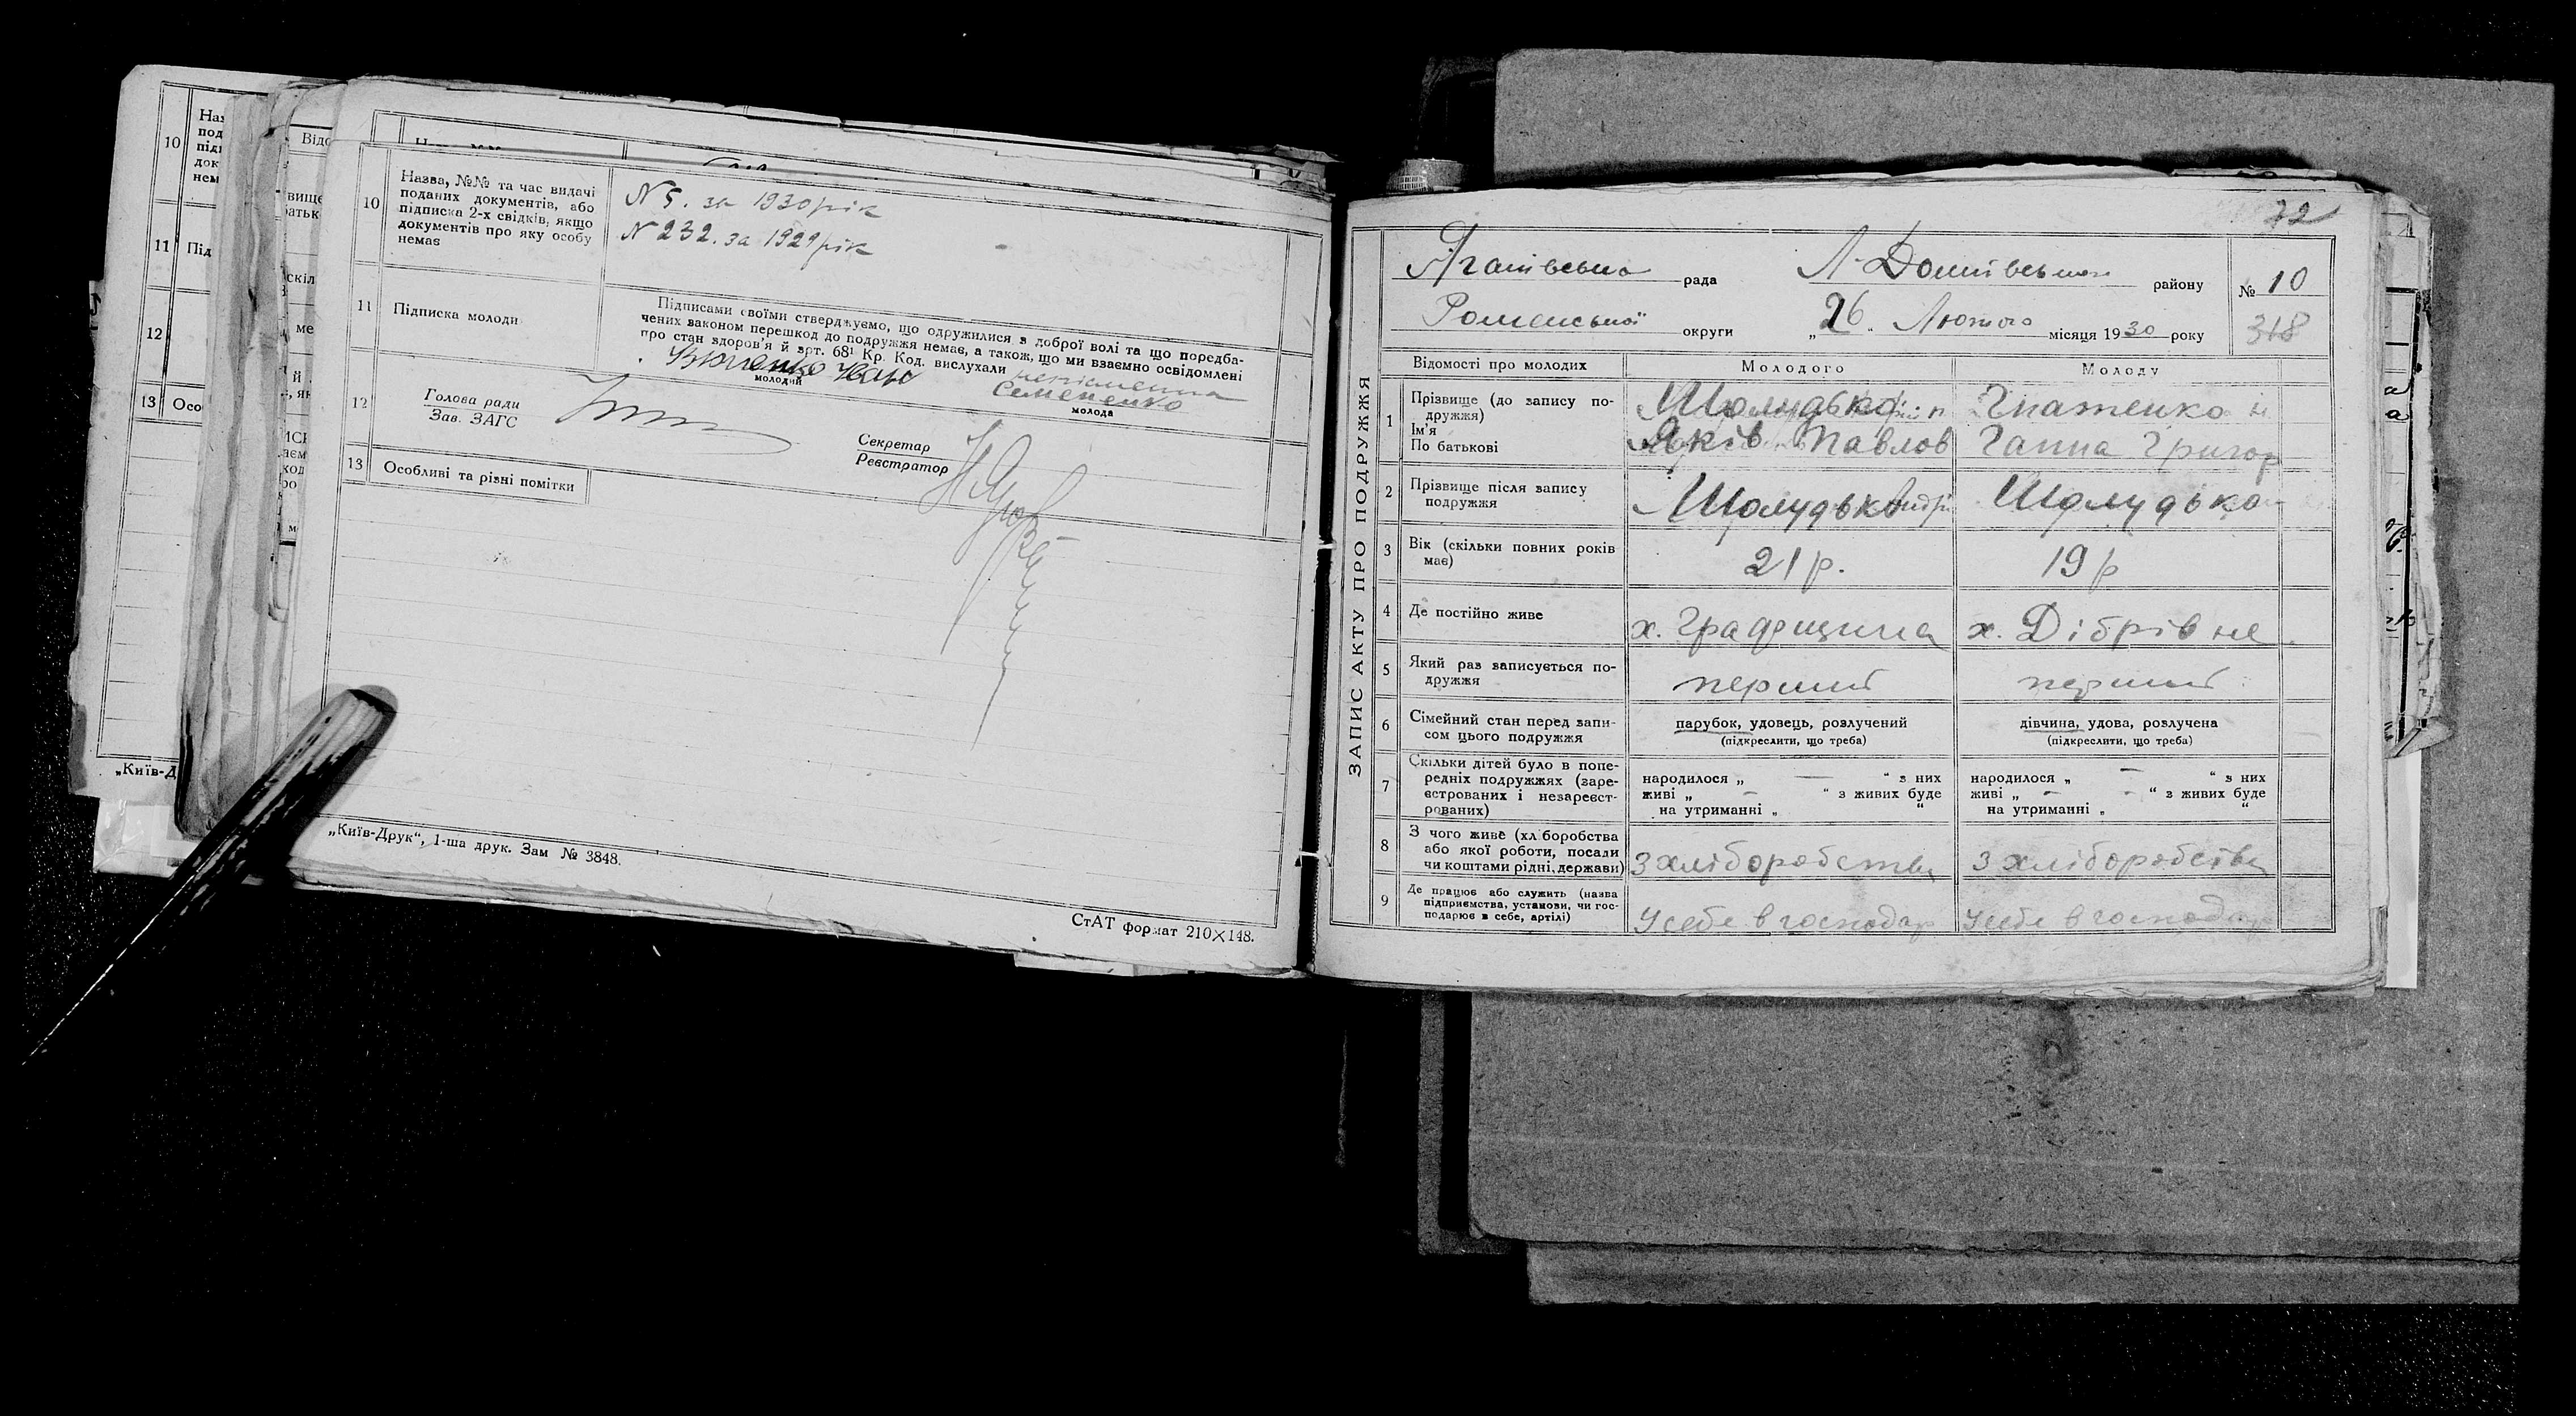 10
11
12
13
"Київ-Д
10
Назва, №№ та час видачі
поданих документів, або
підписка 2-х свідків, якщо
документів про яку особу
немає
N 5. за 1930 рік
N 232. за 1929 рік
11
Підписка молоди
Підписами своїми стверджуємо, що одружилися з доброї волі та що передба-
чених законом перешкод до подружжя немає, а також, що ми взаємно освідомлені
про стан здоров'я й арт. 68¹ Кр. Код. вислухали
неписьменна
Семененко
молодий
молода
12
Голова ради
Зав. ЗАГС
Секретар
Реєстратор
13
Особливі та різні помітки
„Київ-Друк“, 1-ша друк. Зам № 3848.
СтАТ формат 210×148.
72
ЗАПИС АКТУ ПРО ПОДРУЖЖЯ
рада
району
№ 10
Роменської округи
„26„ Лютого місяця 1930 року
318
Відомості про молодих
Молодого
Молоду
1
Прізвище (до запису по-
дружжя)
Ім'я
По батькові
Шолудько
Яків Павлов
Гнатенко
Ганна Григор
2
Прізвище після запису
подружжя
Шолудько
Шолудько
3
Вік (скільки повних років
має)
21 р.
19 р
4
Де постійно живе
х. Градещина
х. Дібрівне
5
Який раз записується по-
дружжя
перший
перший
6
Сімейний стан перед запи-
сом цього подружжя
парубок, удовець, розлучений
(підкреслити, що треба)
дівчина, удова, розлучена
(підкреслити, що треба)
7
Скільки дітей було в попе-
редніх подружжях (заре-
єстрованих і незареєст-
рованих)
народилося „ — “ з них
живі „ — “ з живих буде
на утриманні „ “
народилося „ — “ з них
живі „ — - “ з живих буде
на утриманні „ “
8
З чого живе (хліборобства
або якої роботи, посади
чи коштами рідні, держави)
З хліборобства
З хліборобства
9
Де працює або служить (назва
підприємства, установи, чи гос-
подарює в себе, артілі)
У себе в господар
У себе в господар